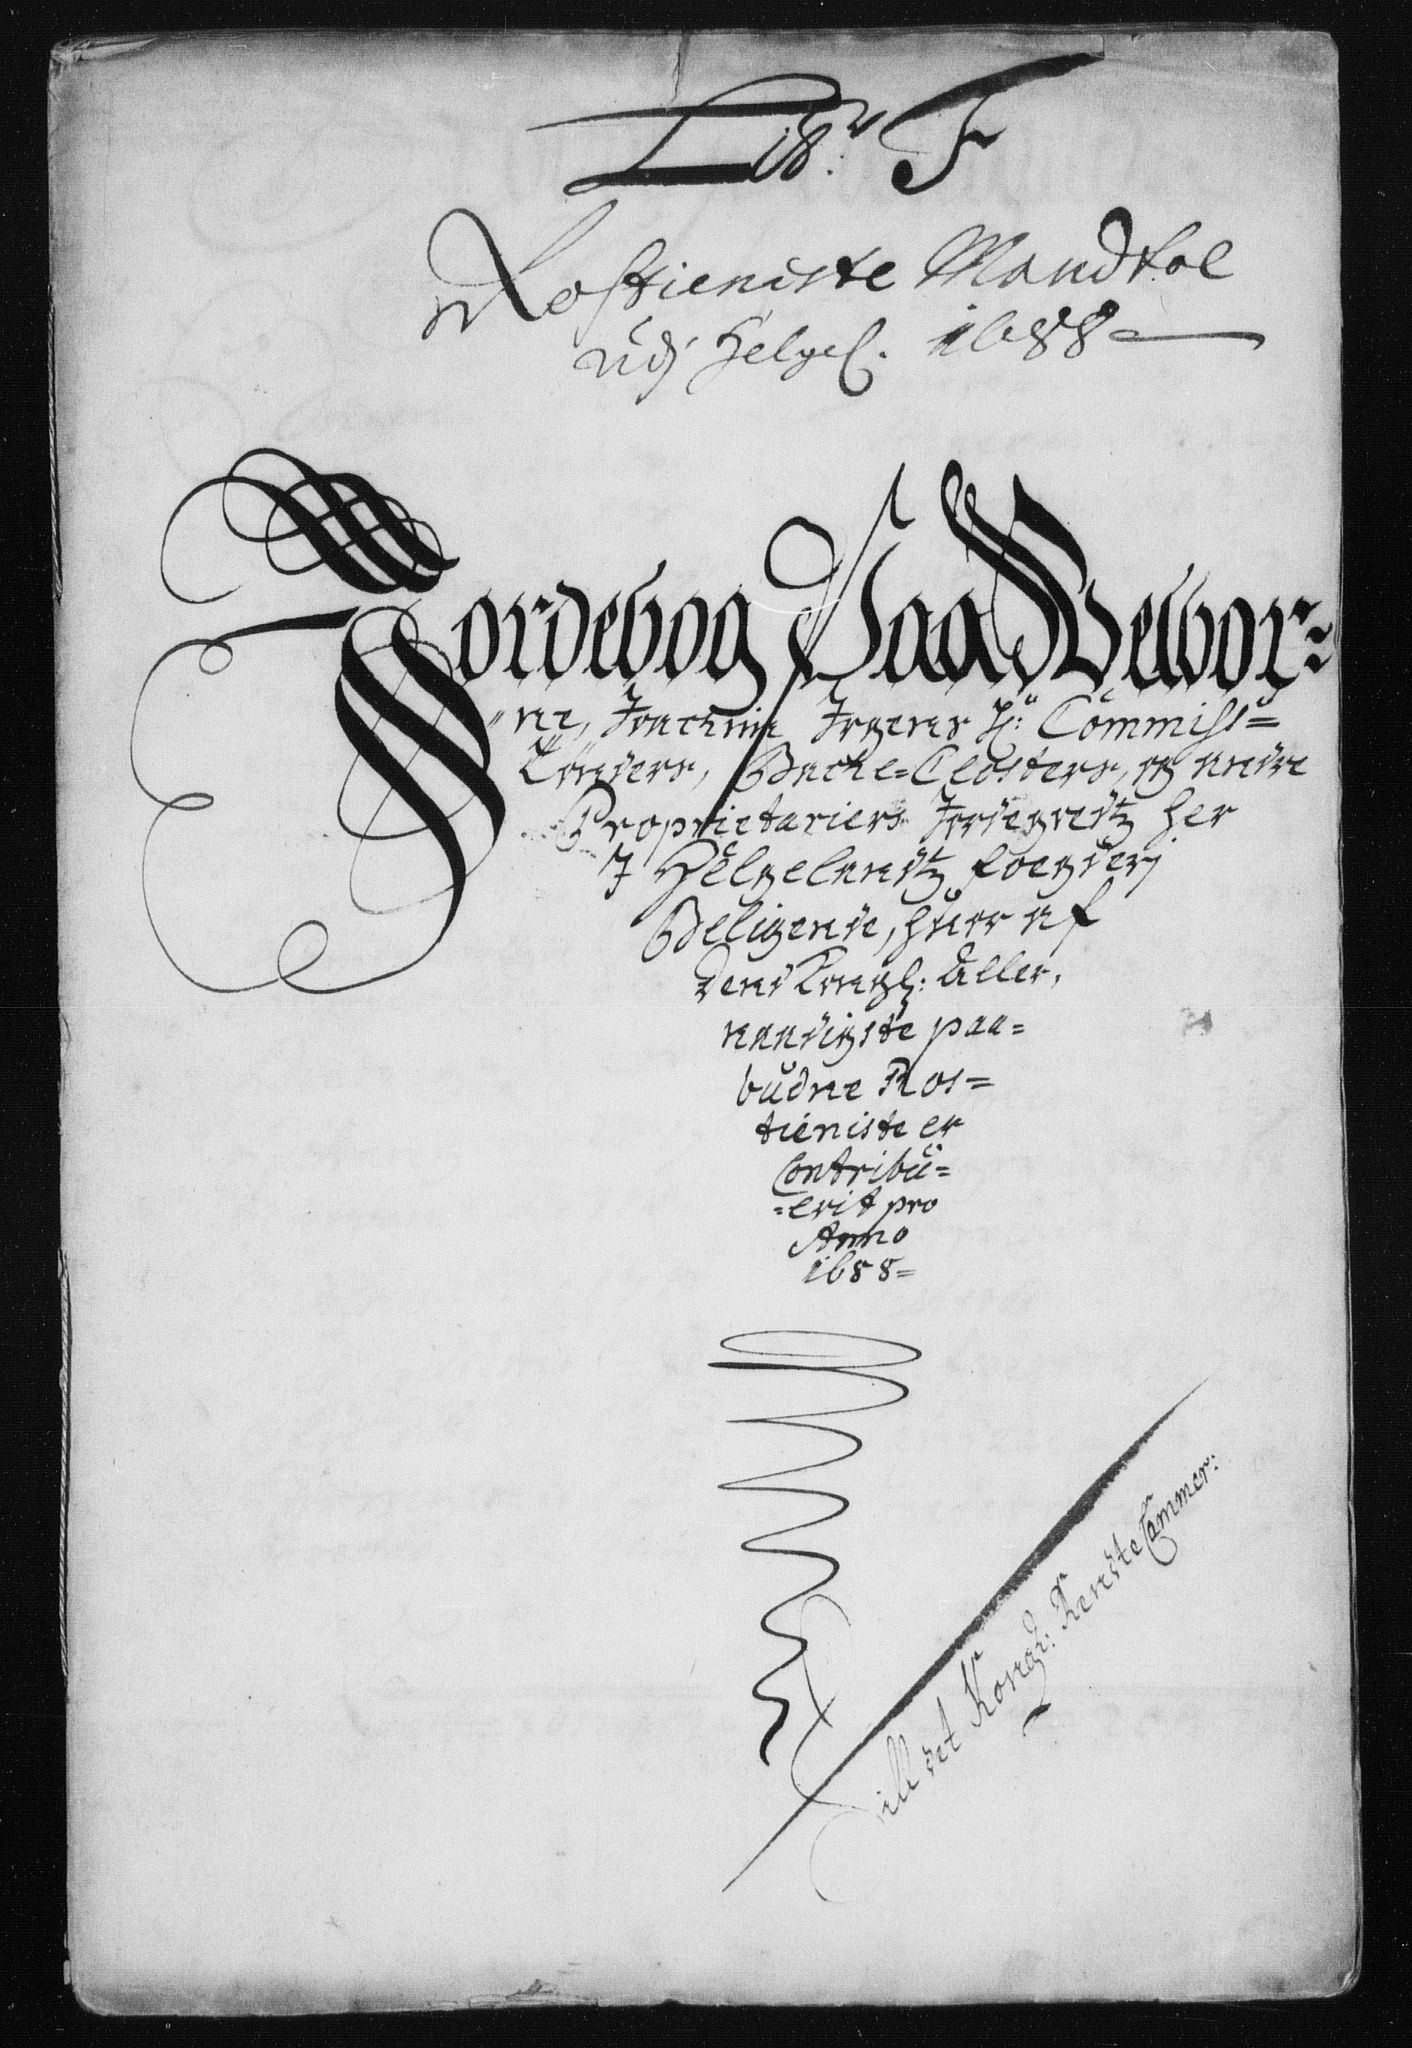 Litr: F
Rostieniste Mandtal
udj Helgel. 1688
Jordebog Paa Welbor-
ne, Joachim Irgens H: Commiss=
Lønders, Backe=Closters, og andre
Proprietariers Jordegodtz her
J Helgelandtz foegderj
Beligende, huor af
dend Kongl: Aller,
naadigste paa=
budne Ros=
tieniste er
Contribu=
=erit pro
Anno
1688=
Till det Kongl: Rente Cammer: